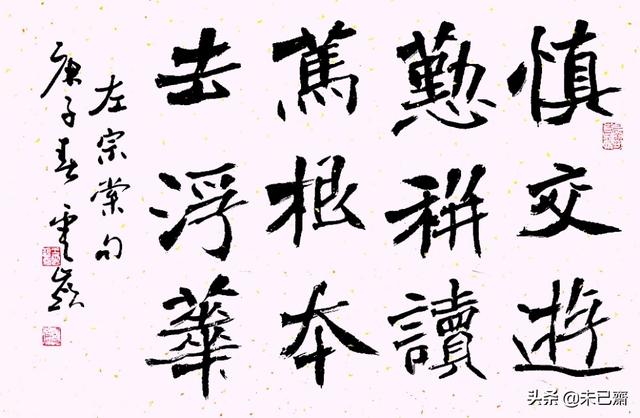 慎交遊
懃耕讀
篤根本
去浮華
左宗棠句
庚子春雲嶺
头条 @未已齋